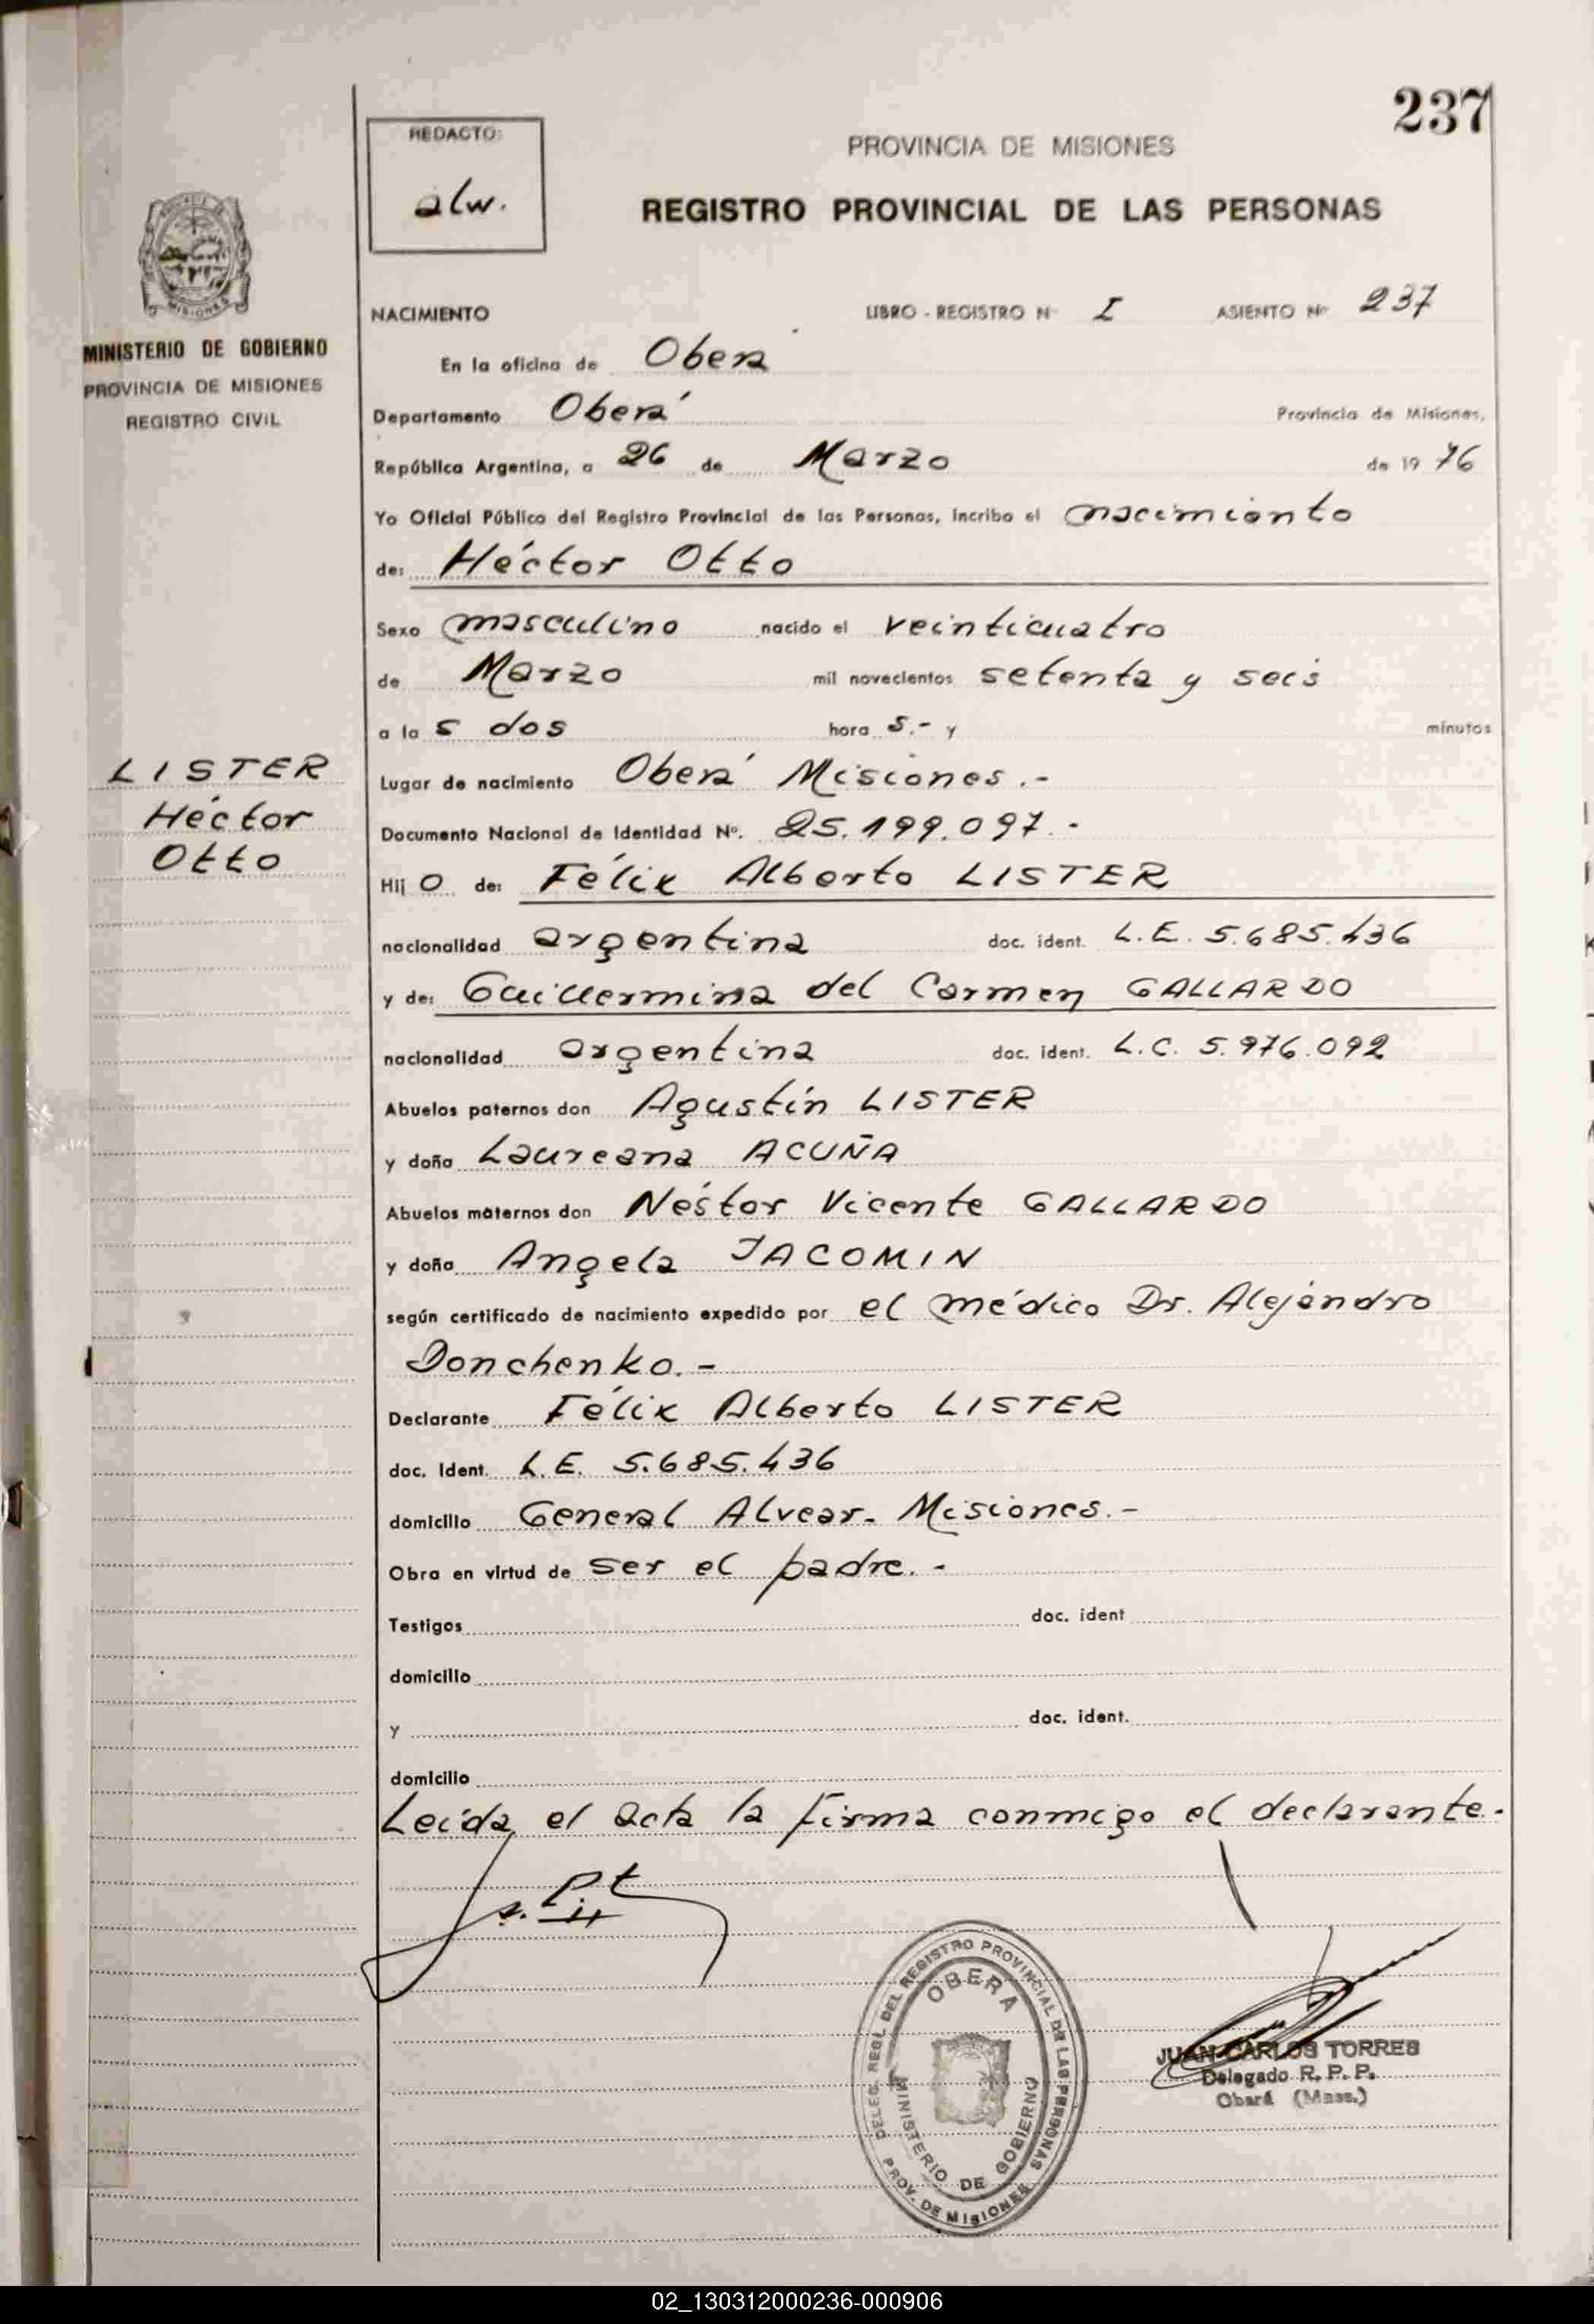 237
REDACTO:
alw.
PROVINCIA DE MISIONES
REGISTRO PROVINCIAL DE LAS PERSONAS
MINISTERIO DE GOBIERNO
PROVINCIA DE MISIONES
REGISTRO CIVIL
NACIMIENTO LIBRO - REGISTRO Nº I ASIENTO Nº 237
En la oficina de Obera
Departamento Oberá Provincia de Misiones,
República Argentina, a 26 de Marzo de 19 76
Yo Oficial Público del Registro Provincial de las Personas, incribo el nacimiento
de: Héctor Otto
Sexo masculino nacido el veinticuatro
de Marzo mil novecientos setenta y seis
a la s dos hora s.- y minutos
Lugar de nacimiento Oberá Misiones.-
Documento Nacional de Identidad Nº. 25.199.097.-
LISTER
Héctor
Otto
Hij o de: Félix Alberto LISTER
nacionalidad argentina doc. ident. L.E. 5.685.436
y de: Guillermina del Carmen GALLARDO
nacionalidad argentina doc. ident. L.C. 5.976.092
Abuelos paternos don Agustín LISTER
y doña Laureana ACUÑA
Abuelos maternos don Néstor Vicente GALLARDO
y doña Angela JACOMIN
según certificado de nacimiento expedido por el médico Dr. Alejandro
Donchenko.-
Declarante Félix Alberto LISTER
doc. Ident. L.E. 5.685.436
domicilio General Alvear - Misiones.-
Obra en virtud de ser el padre.-
Testigos doc. ident
domicilio
y doc. ident.
domicilio
Leída el acta la firma conmigo el declarante.-
DELEG. REGL. DEL REGISTRO PROVINCIAL DE LAS PERSONAS
OBERA
MINISTERIO DE GOBIERNO
PROV. DE MISIONES
JUAN CARLOS TORRES
Delegado R. P. P.
Oberá (Mnes.)
02_130312000236-000906